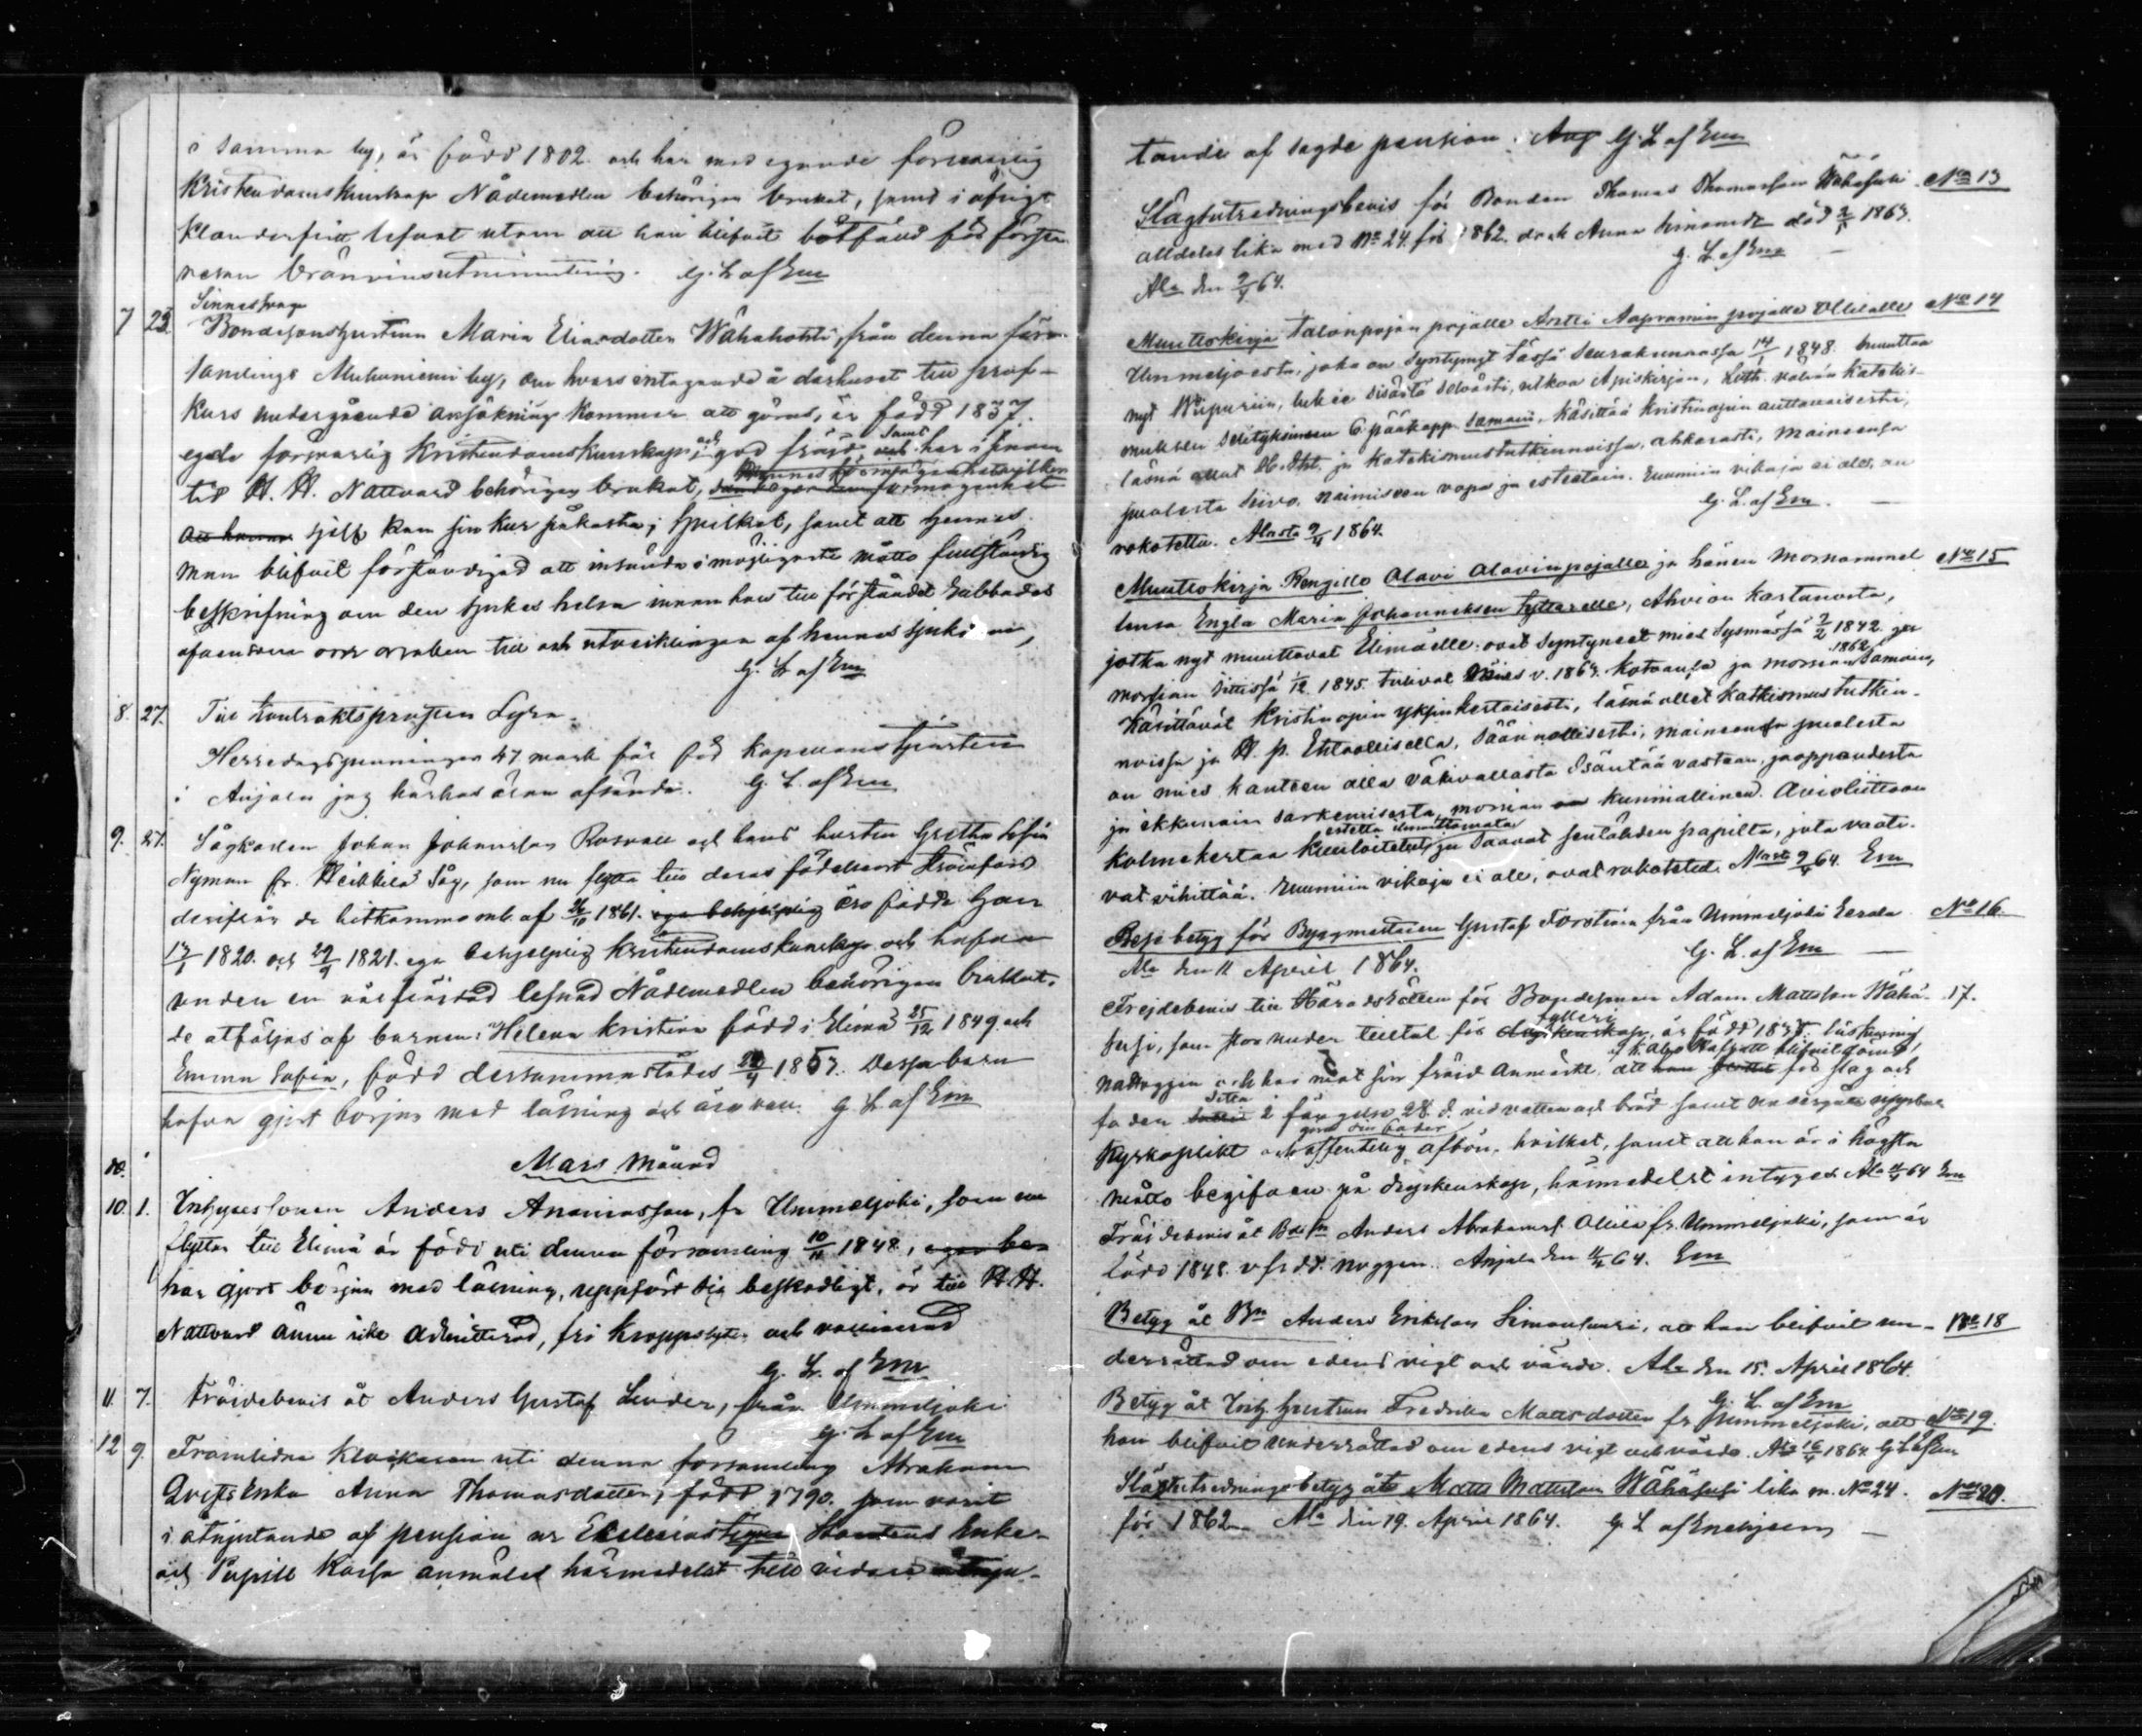 i samma by, är född 1802. och har med egande försvarlig
Kristendomskunskap Nådemedlen behörigen brukat, samt i öfrigt
klanderfritt lefvat utom att han blifvit bötfäld för första
resan bränvinsutminutering. G. L. af Em
Sinnessvaga
7 23. Bondesonshustrun Maria Eliasdotter Wähähohti, från denna för-
samlings Muhuniemi by, om hvars intagande å dårhuset till prof-
kurs undergående ansökning kommer att göras, är född 1837.
egde försvarlig Kristendomskunskap, och god frejd, samt har i sin
tid H. H. Nattvard behörigen brukat, hennes förmögenhetsvilkor
sjelf kan sin kur påkosta, hvilket, samt att hennes
man blifvit förständigad att insända i möjligaste måtto fullständig
beskrifning om den sjukes helsa innan hon till förståndet rubbades
äfvensom om orsaken till och utvecklingen af hennes sjukdom,
G. L. af Em
8. 27. Till Kontraktsprosten Lyra.
Herredagspenningen 47 mark för från kapellans tjensten
i Anjala jag härhos äran afsända. G. L. af Em
9. 27. Sågkarlen Johan Johansson Rosvall och hans hustru Gretha Sofia
Nyman fr. Heikkilä Såg, som nu flytta till deras födelseort Strömfors
derifrån de hitkommo enl. af 26/10 1861. ega behjelplig äro födde han
13/1 1820. och 29/9 1821. ega behjelplig Kristendomskunskap och hafva
under en välfrejdad lefnad Nådemedlen behörigen brukat.
de åtföljas af barnen: Helena Kristina född i Elimä 25/12 1849 och
Emma Sofia, född dersammastädes 20/4 1857. Dessa barn
hafva gjort början med läsning och äro vac. G. L. af Em
Mars Månad
10. 1. Inhysessonen Anders Ananiasson, fr Ummeljoki, som nu
flyttar till Elimä är född uti denna församling 10/11 1848, eger be-
har gjort början med läsning, uppfört sig beskedligt, är till H. H.
Nattvard ännu icke admitterad, fri kroppslyten och vaccinerad
G. L. af Em
11. 7. Fräjdebevis åt Anders Gustaf Linder, från Ummeljoki
G. L. af Em
12 9. Framlidna Klockaren uti denna församling Abraham
Qvists Enka Anna Thomasdotter, född 1790. som varit
i åtnjutande af pension ur Ecklesiastique Staatens Enke-
och Pupill Kassa anmäles härmedelst till vidare åtnju-
tande af sagde pension. Ang G. L. af Em
Slägtutredningsbevis för Bonden Thomas Thomasson Wähäsusi No 13
alldeles lika med No 24. för 1862. dock Anna Simonsdr död 2/1 1863.
Ala den 9/4 64. G. L. af Em
Muuttokirja Talonpojan pojalle Antti Aapramin pojalle Ollilalle No 14
Ummeljoesta, joka on syntynyt tässä Seurakunnassa 14/1 1848. muuttaa
nyt Wiipuriin, lukee sisästä selvästi, ulkoa Apiskirjan, Luth. vähän katekis-
muksen selityksineen 6. pääkapp. samoin, käsittää kristinopin auttavaisesti,
läsnä ollut H. Eht. ja Katekismustutkinnoissa, ahkerasti, maineensa
puolesta siivo. naimiseen vapa ja esteetöin. Ruumiin vikoja ei ole, on
rokotettu. Alasta 9/4 1864. G. L. af Em.
Muuttokirja Rengille Olavi Olavinpojalle ja hänen morsiammel No 15
lensa Engla Maria Johanneksen tyttärelle, Ahvion Kartanosta,
jotka nyt muuttavat Elimäelle. ovat syntyneet mies Sysmässä 7/2 1842. ja
morsian Iitissä 1/12 1845. tulivat mies v. 1863. Kotvaula ja morsian 1862 samoin,
Käsittävät Kristinopin yksinkertaisesti, läsnä ollet Katkismustutkin-
noissa ja H. p. Ehtoollisella, säännollisesti, maineensa puolesta
on mies kanteen alla väkivallasta Isäntää vastaan, juoppoudesta
ja ikkunain särkemisestä, morsian kunniallinen. Avioliittoon
Kolmekertaa kuulutetut, estettä ilmoittamata ja saavat sentähden papilta, jota vaati-
vat vihittää. Ruumiin vikoja ei ole, ovat rokotetud. Alast. 9/4 64. Em
Resebetyg för Byggmästaren Gustaf Forsten från Ummeljoki Eerola No 16.
Ala den 11 April 1864. G. L. af Em
Frejdebevis till Häradsrätten för Bondesonen Adam Mattsson Wähä- 17.
susi, som står under tilltal för fylleri, är född 1838. läskunnig
nattvggen och har mot sin frejd anmärkt, att af K. Åbo Hofrätt blifvit dömd, för slag och
sitta i fängelse 28 d. vid vatten och bröd samt undergå uppenbar
Kyrkoplikt och göra sin fader offentelig afbön, hvilket, samt att han är i högsta
måtto begifven på dryckenskap, härmedelst intygas Ala 11/4 64 Em
Fräjdebevis åt Bdesn Anders Abrahamss. Ollila fr. Ummeljoki, som är
född 1848. v. fr. dd. nvggen. Anjala den 11/4 64. Em
Betyg åt Bn Anders Eriksson Simonsusi, att han blifvit un- No 18
derrättad om edens vigt och värde. Ala den 15. April 1864.
G. L. af Em
Betyg åt Inh. hustrun Fredrika Mattsdotter fr Ummeljoki, att No 19.
hon blifvit underrättad om edens vigt och värde. Ala 16/4 1864. G. L. af Em
Slägtutredningsbetyg åt Matts Mattsson Wähäsusi lika m. No 24. No 20.
för 1862. Ala den 19. April 1864. G. L. af Enehjelm